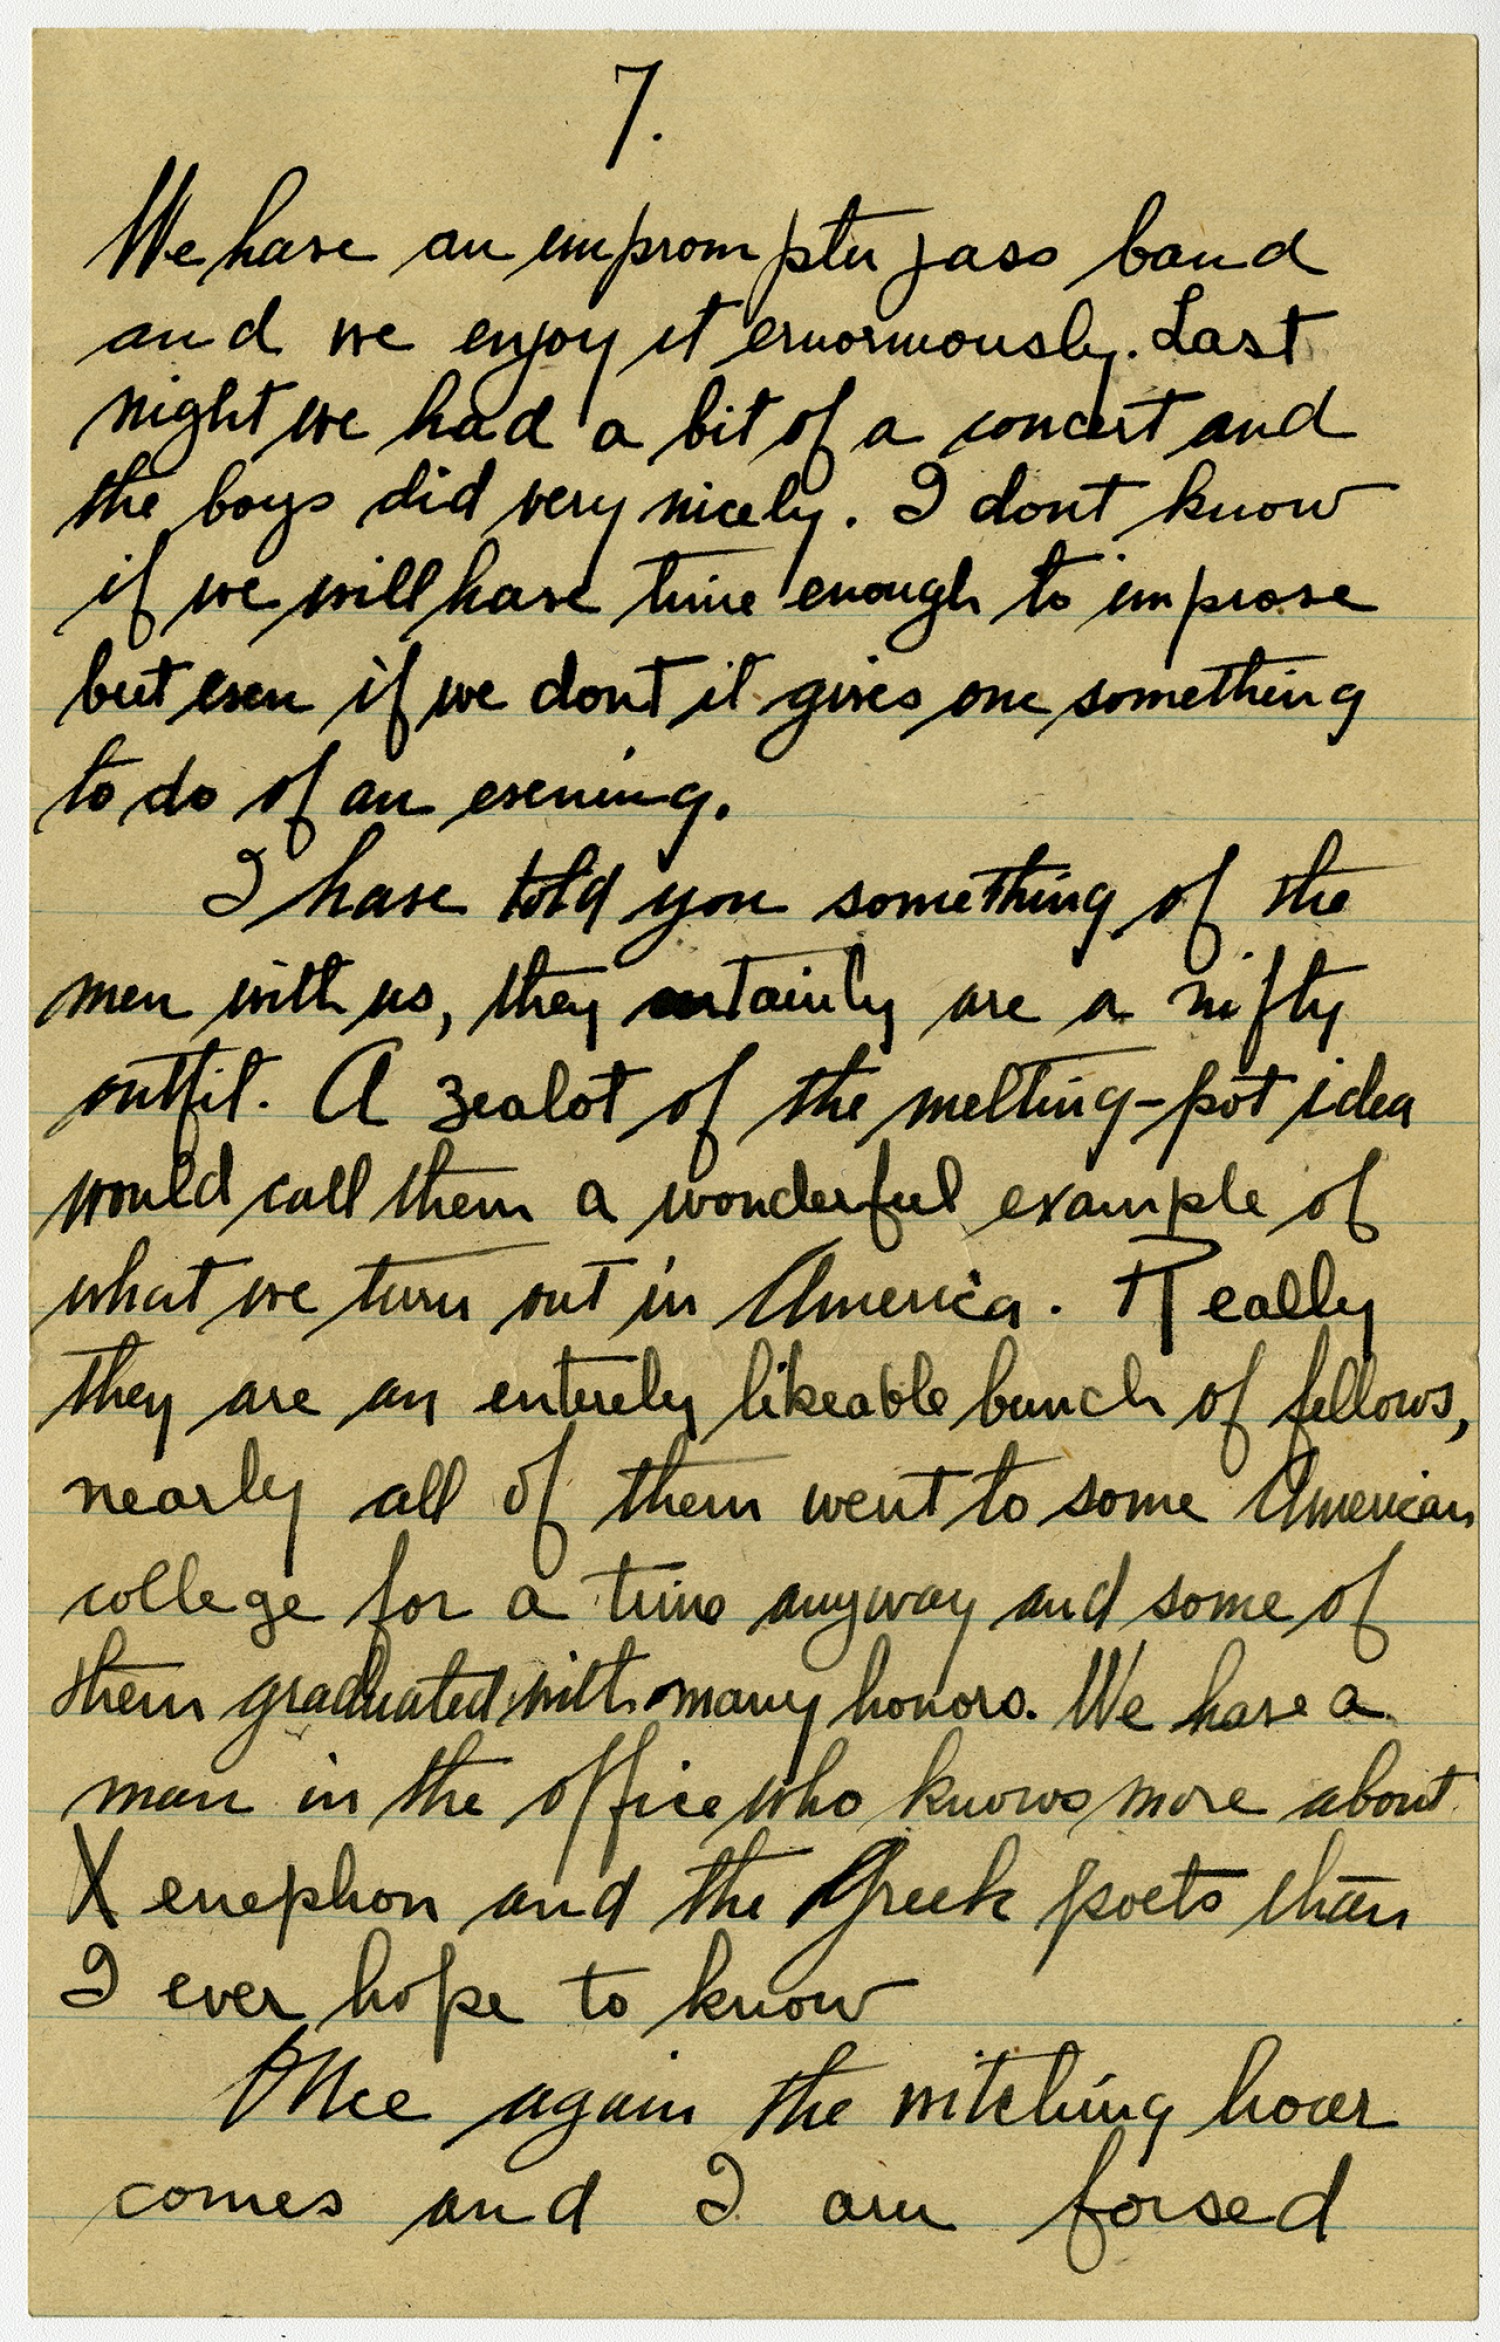 7.
We have an impromptu jass band
and we enjoy it enormously. Last
night we had a bit of a concert and
the boys did very nicely. I dont know
if we will have time enough to improve
but even if we dont it gives one something
to do of an evening.
I have told you something of the
men with us, they certainly are a nifty
outfit. A zealot of the melting-pot idea
would call them a wonderful example of
what we turn out in America. Really
they are an entirely likeable bunch of fellows,
nearly all of them went to some American
college for a time anyway and some of
them graduated with many honors. We have a
man in the office who knows more about
Xenephon and the Greek poets than
I ever hope to know
Once again the witching hour
comes and I am forsed